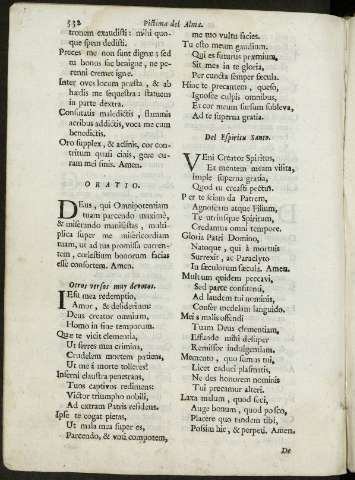 532 Pictima del Alma.
tronem exaudisti: mihi quo-
que spem dedisti.
Preces meæ non sunt dignæ: sed
tu bonus fac benigne, ne pe-
renni cremer igne.
Inter oves locum præsta, & ab
hædis me sequestra: statuens
in parte dextra.
Confutatis maledictis, flammis
acribus addictis, voca me cum
benedictis.
Oro supplex, & aclinis, cor con-
tritum quasi cinis, gere cu-
ram mei finis. Amen.
ORATIO.
DEus, qui Omnipotentiam
tuam parcendo maximè,
& miserando manifestas, multi-
plica super me misericordiam
tuam, ut ad tua promissa curren-
tem, cœlestium bonorum facias
esse consortem. Amen.
Otros versos muy devotos.
IEsu mea redemptio,
Amor, & desiderium:
Deus creator omnium,
Homo in fine temporum.
Que te vicit clementia,
Ut ferres mea crimina,
Crudelem mortem patiens,
Ut me à morte tolleres!
Inferni claustra penetrans,
Tuos captivos redimens:
Victor triumpho nobili,
Ad extram Patris residens.
Ipse te cogat pietas,
Ut mala mea super es,
Parcendo, & voti compotem,
me tuo vultu facies.
Tu esto meum gaudium,
Qui es futurus præmium,
Sit mea in te gloria,
Per cuncta semper sæcula.
Hinc te precantem, queso,
Ignosce culpis omnibus,
Et cor meum sursum subleva,
Ad te superna gratia.
Del Espiritu Santo.
VEni Creator Spiritus,
Et mentem meam visita,
Imple superna gratia,
Quod tu creasti pectus.
Per te sciam da Patrem,
Agnoscam atque Filium,
Te utriusque Spiritum,
Credamus omni tempore.
Gloria Patri Domino,
Natoque, qui à mortuis
Surrexit, ac Paraclyto
In sæculorum sæcula. Amen.
Multum quidem peccavi,
Sed parce confitenti,
Ad laudem tui nominis,
Confer medelam languido.
Mei s malis offendi
Tuam Deus clementiam,
Effunde mihi desuper
Remissor indulgentiam.
Memento, quo sum as tui,
Licet caduci plasmatis,
Ne des honorem nominis
Tui precamur alteri.
Laxa malum, quod feci,
Auge bonum, quod posco,
Placere quo tandem tibi,
Possim hic, & perpeti. Amen.
De